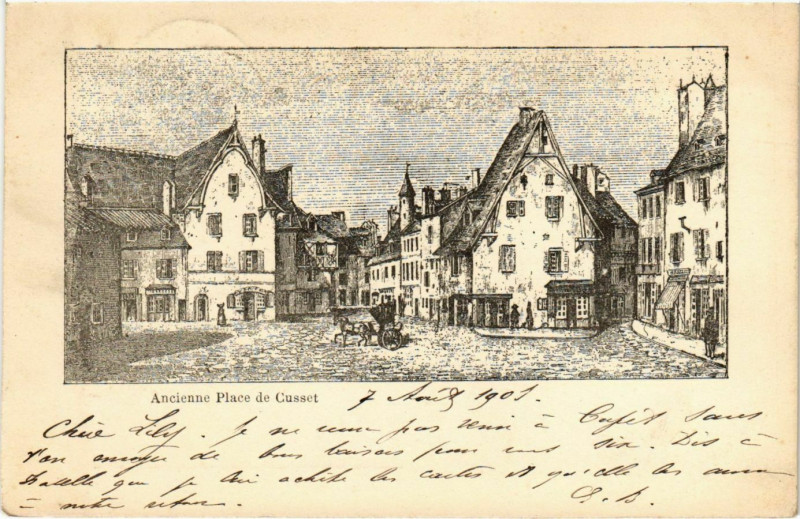 Ancienne Place de Cusset
7 Août 1901.
Chère Lily. Je ne veux pas venir à Cusset sans
t'en envoyer de bons baisers pour vous six. Dis à
que je lui achète les cartes et qu'elle les aura
à notre retour.